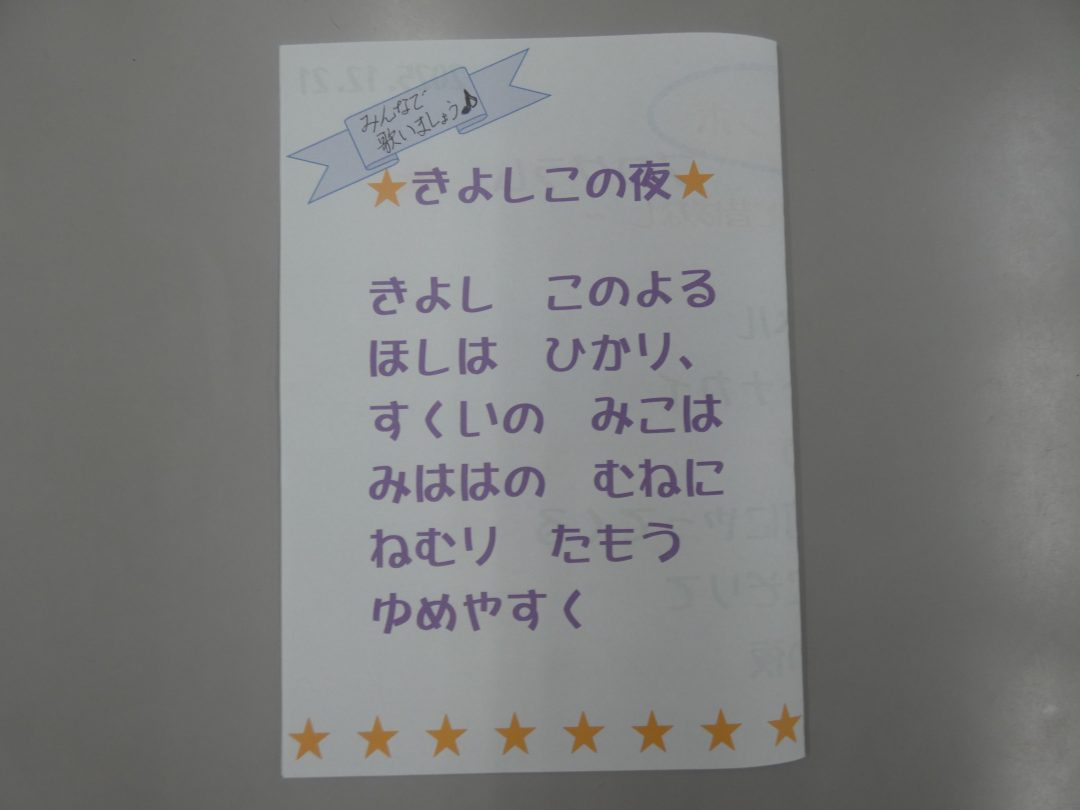 みんなで
歌いましょう♪
★きよしこの夜★
きよし　このよる
ほしは　ひかり、
すくいの　みこは
みははの　むねに
ねむり　たもう
ゆめやすく